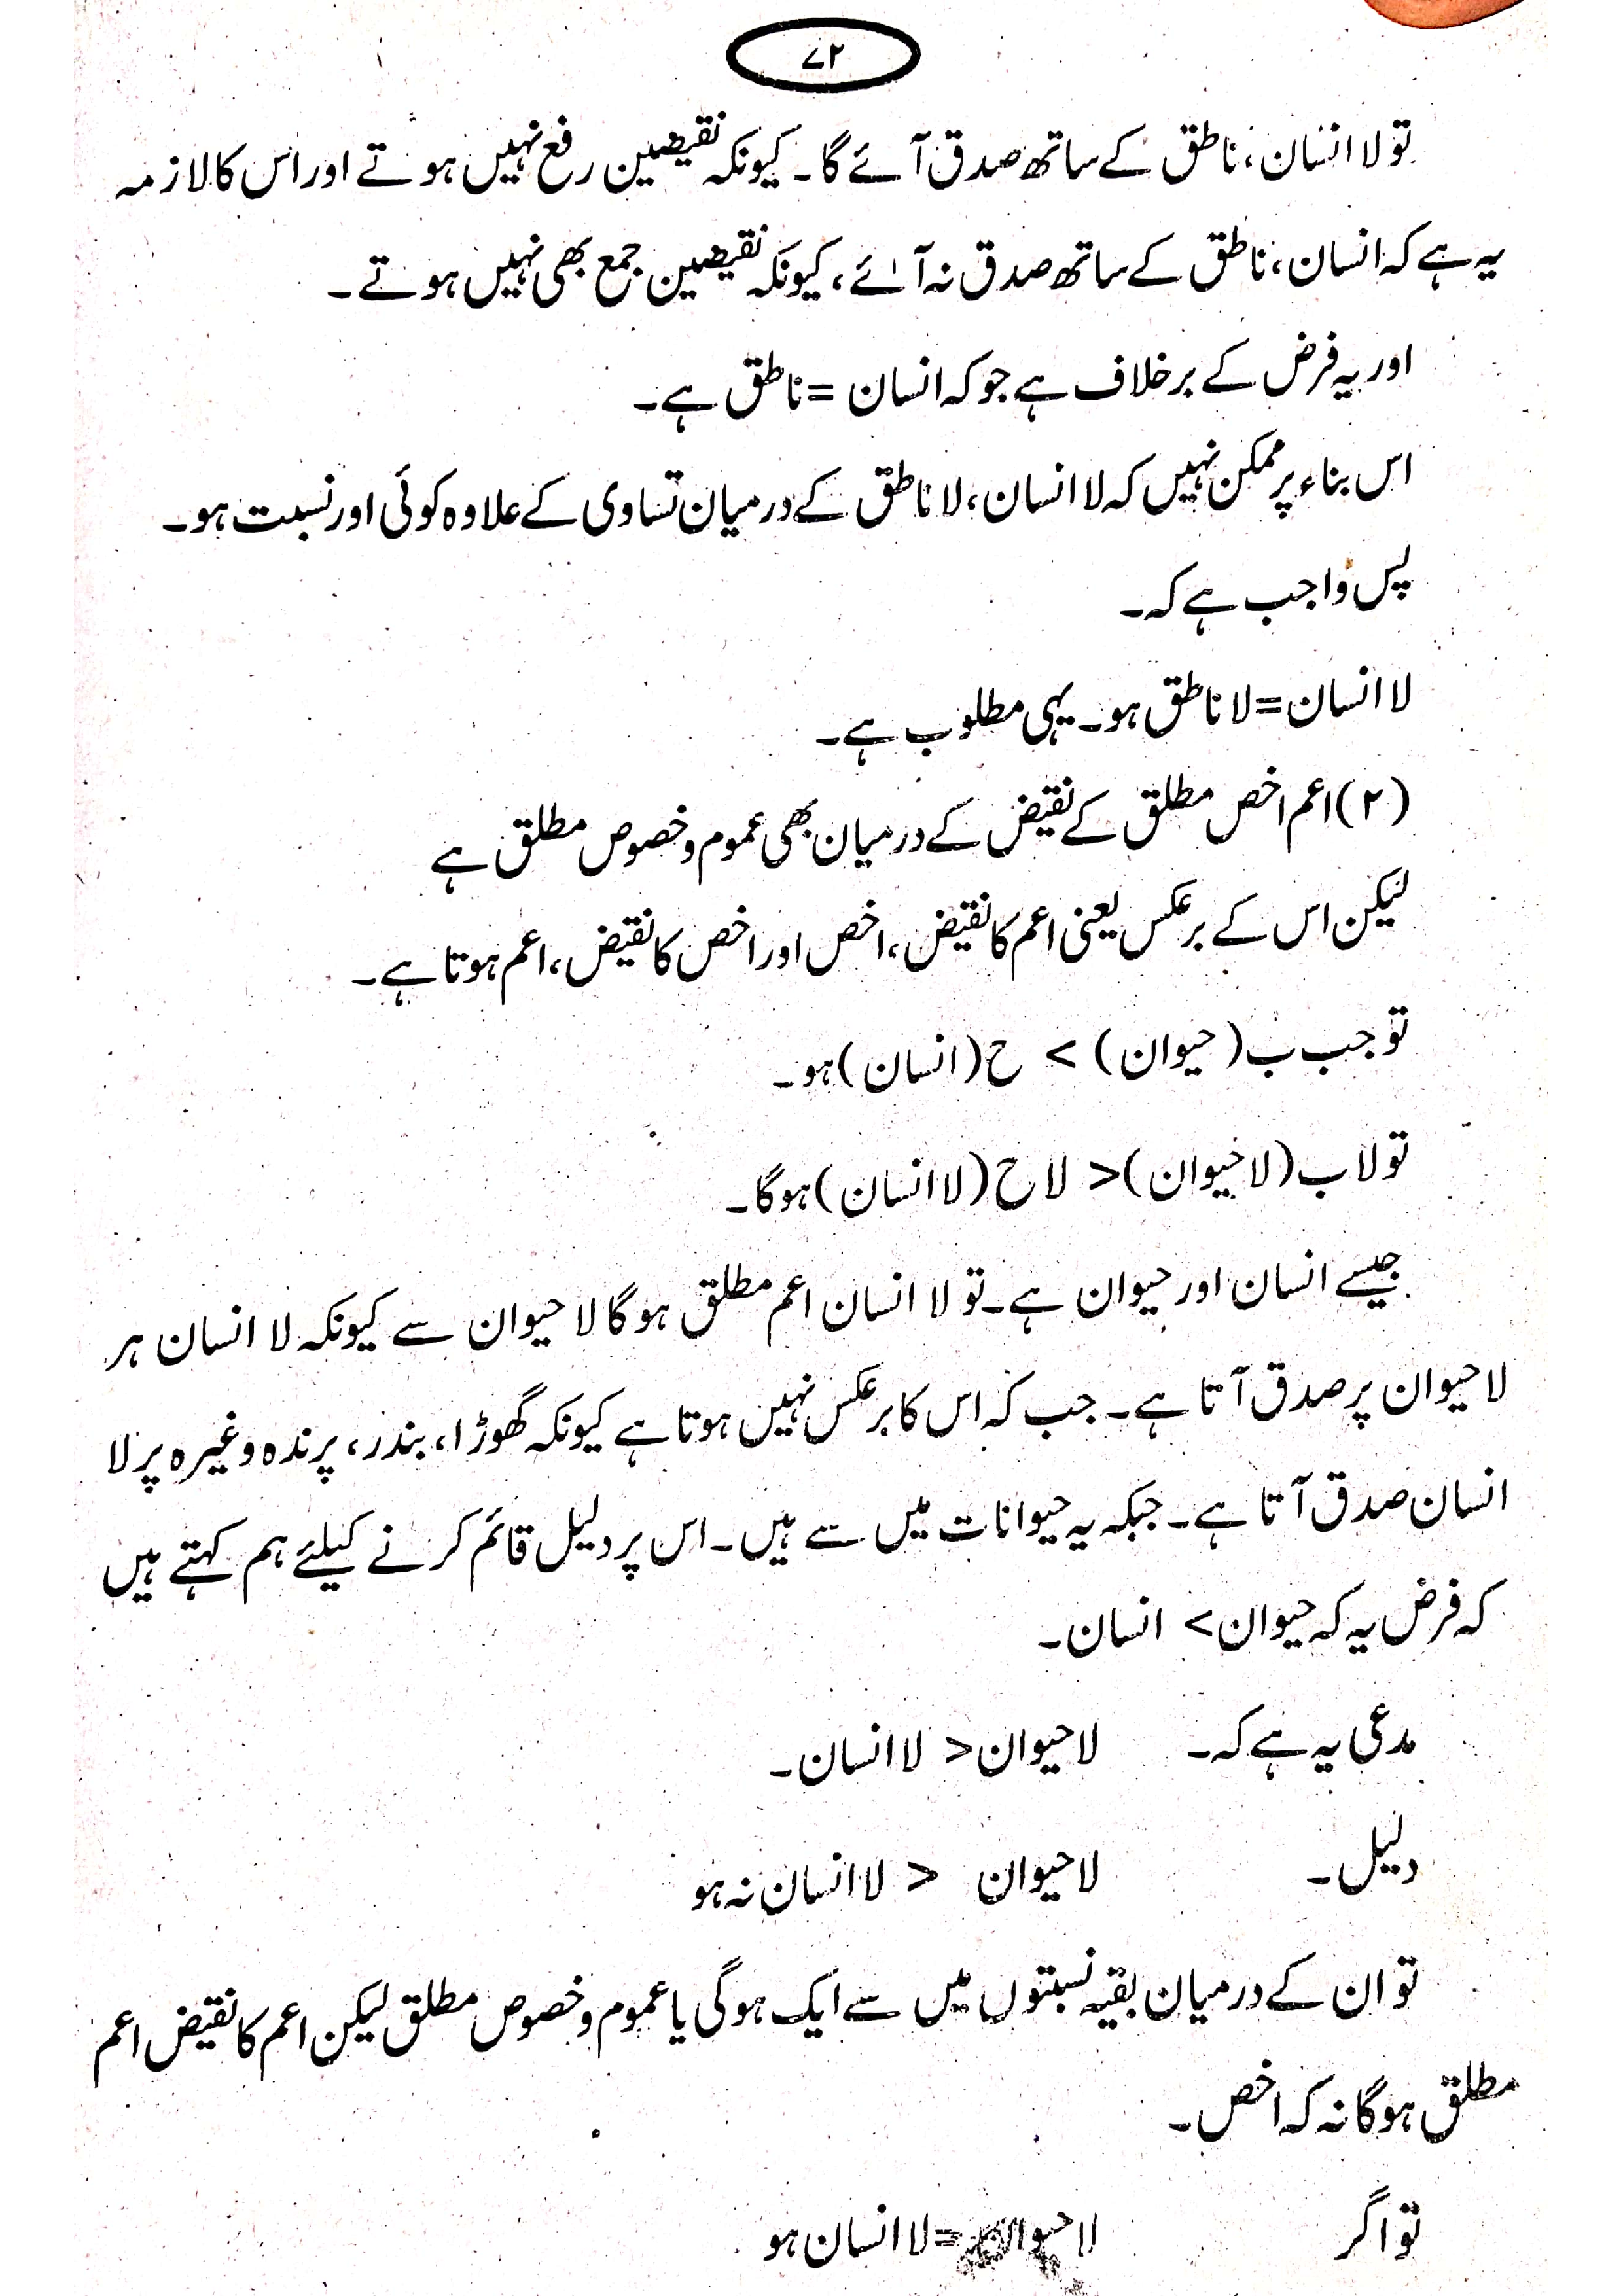 ۷۲
تو لا انسان، ناطق کے ساتھ صدق آئے گا۔ کیونکہ نقیضین رفع نہیں ہوتے اور اس کا لازمہ
یہ ہے کہ انسان، ناطق کے ساتھ صدق نہ آئے، کیونکہ نقیضین جمع بھی نہیں ہوتے۔
اور یہ فرض کے برخلاف ہے جو کہ انسان = ناطق ہے۔
اس بناء پر ممکن نہیں کہ لا انسان، لا ناطق کے درمیان تساوی کے علاوہ کوئی اور نسبت ہو۔
پس واجب ہے کہ۔
لا انسان = لا ناطق ہو۔ یہی مطلوب ہے۔
(۲) اعم اخص مطلق کے نقیض کے درمیان بھی عموم و خصوص مطلق ہے
لیکن اس کے برعکس یعنی اعم کا نقیض، اخص اور اخص کا نقیض، اعم ہوتا ہے۔
تو جب ب (حیوان) < ح (انسان) ہو۔
تو لا ب (لا حیوان) > لا ح (لا انسان) ہوگا۔
جیسے انسان اور حیوان ہے۔ تو لا انسان اعم مطلق ہوگا لا حیوان سے کیونکہ لا انسان ہر
لا حیوان پر صدق آتا ہے۔ جب کہ اس کا برعکس نہیں ہوتا ہے کیونکہ گھوڑا، بندر، پرندہ وغیرہ پر لا
انسان صدق آتا ہے۔ جبکہ یہ حیوانات میں سے ہیں۔ اس پر دلیل قائم کرنے کیلئے ہم کہتے ہیں
کہ فرض یہ کہ حیوان < انسان۔
مدعی یہ ہے کہ۔ لا حیوان > لا انسان۔
دلیل۔ لا حیوان > لا انسان نہ ہو
تو ان کے درمیان بقیہ نسبتوں میں سے ایک ہوگی یا عموم و خصوص مطلق لیکن اعم کا نقیض اعم
مطلق ہوگا نہ کہ اخص۔
تو اگر لا حیوان = لا انسان ہو